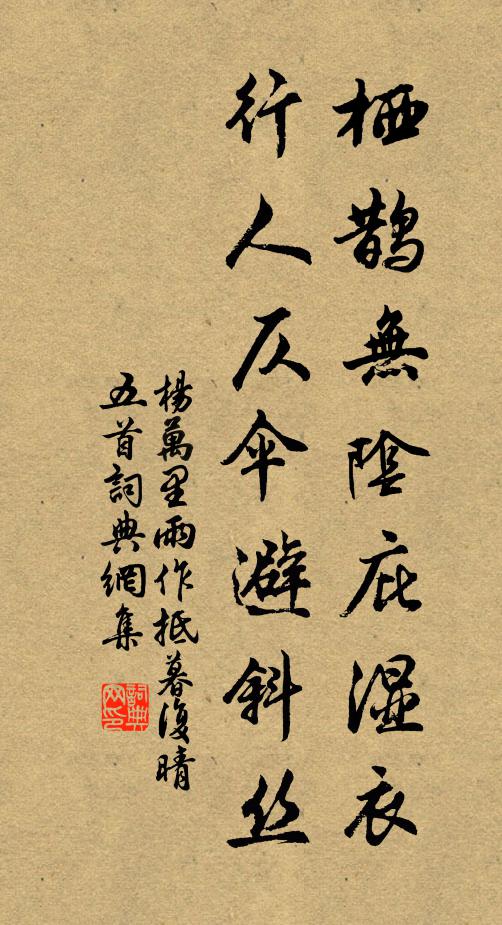 栖鹊無陰庇湿衣
行人仄傘避斜丝
楊萬里雨作抵暮復晴
五首詞典網集
詞典
网印